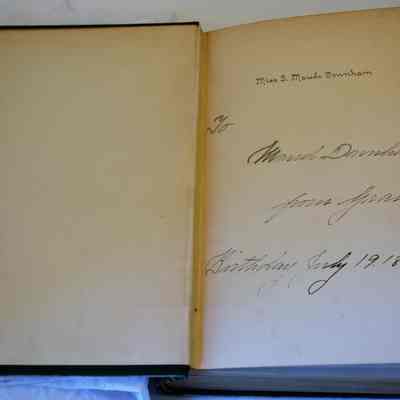 Miss S. Maude Downham
To
Maud Downh
from Gran
Birthday July 19. 18